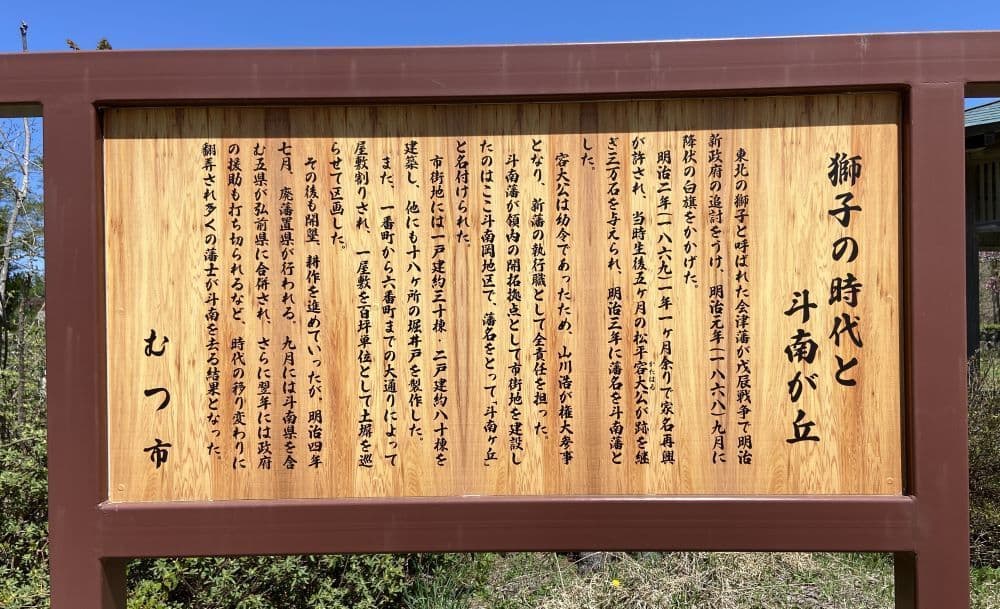 獅子の時代と
斗南が丘
東北の獅子と呼ばれた会津藩が戊辰戦争で明治
新政府の追討をうけ、明治元年(一八六八)九月に
降伏の白旗をかかげた。
明治二年(一八六九)一年一ヶ月余りで家名再興
が許され、当時生後五ヶ月の松平容大公が跡を継
かたはる
ぎ三万石を与えられ、明治三年に藩名を斗南藩と
した。
容大公は幼令であったため、山川浩が権大参事
となり、新藩の執行職として全責任を担った。
斗南藩が領内の開拓拠点として市街地を建設し
たのはここ斗南岡地区で、藩名をとって「斗南ヶ丘」
と名付けられた
市街地には一戸建約三十棟・二戸建約八十棟を
建築し、他にも十八ヶ所の堀井戸を製作した。
また、一番町から六番町までの大通りによって
屋敷割りされ、一屋敷を百坪単位として土塀を巡
らせて区画した。
その後も開墾、耕作を進めていったが、明治四年
七月、廃藩置県が行われる。九月には斗南県を含
む五県が弘前県に合併され、さらに翌年には政府
の援助も打ち切られるなど、時代の移り変わりに
翻弄され多くの藩士が斗南を去る結果となった。
むつ市